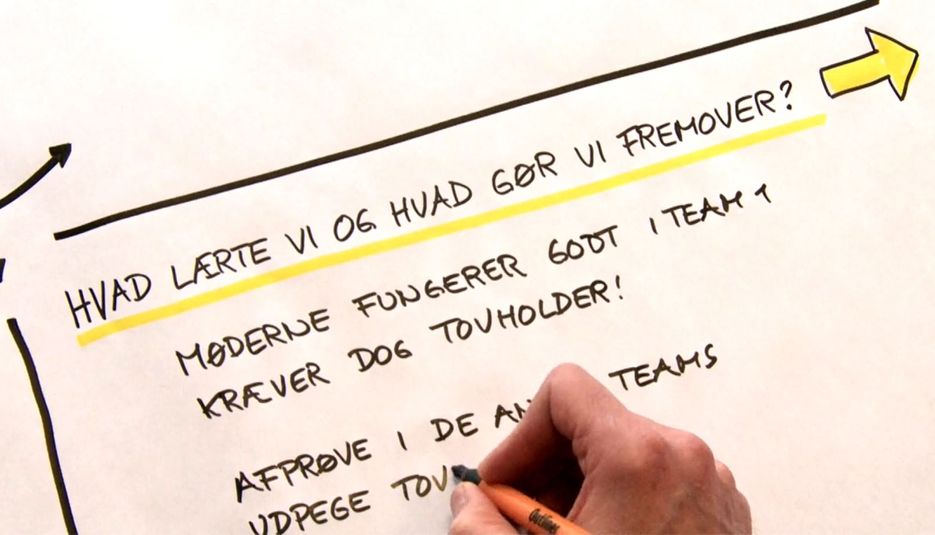 HVAD LÆRTE VI OG HVAD GØR VI FREMOVER?
MØDERNE FUNGERER GODT I TEAM 1
KRÆVER DOG TOVHOLDER!
AFPRØVE I DE TEAMS
UDPEGE TOV
Outliner